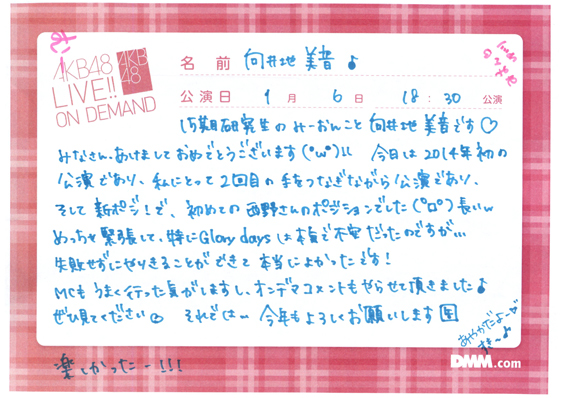 AKB48
LIVE!!
ON DEMAND
AKB
48
名前 向井地 美音♪
公演日 1月 6日 18:30 公演
15期研究生のみーおんこと向井地美音です♡
みなさん、あけましておめでとうございます(・ω・)!! 今日は2014年初の
公演であり、私にとって2回目の手をつなぎながら公演であり、
そして新ポジ!で、初めての西野さんのポジションでした(°ロ°)長いw
めっちゃ緊張して、特にGlory daysは本気で不安だったのですが…
失敗せずにやりきることができて本当によかったです!
MCもうまく行った気がしますし、オンデマコメントもやらせて頂きました♪
ぜひ見てください それでは… 今年もよろしくお願いします
あやかだよーん
すき〜♪
DMM.com
楽しかったー!!!